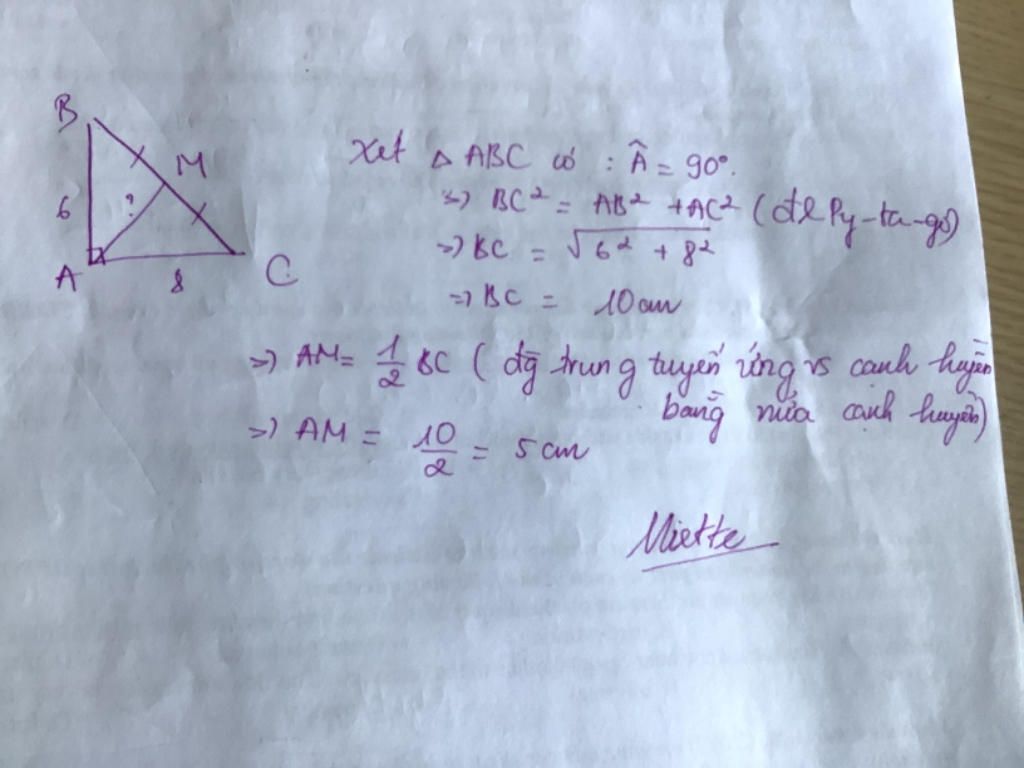 B
M
6
?
A
8
C
Xét △ ABC có : Â = 90°.
=> BC² = AB² + AC² (đl Py-ta-go)
=> BC = √6² + 8²
=> BC = 10cm
=> AM = 1/2 BC ( đg trung tuyến ứng vs cạnh huyền
bằng nửa cạnh huyền)
=> AM = 10/2 = 5 cm
Miette